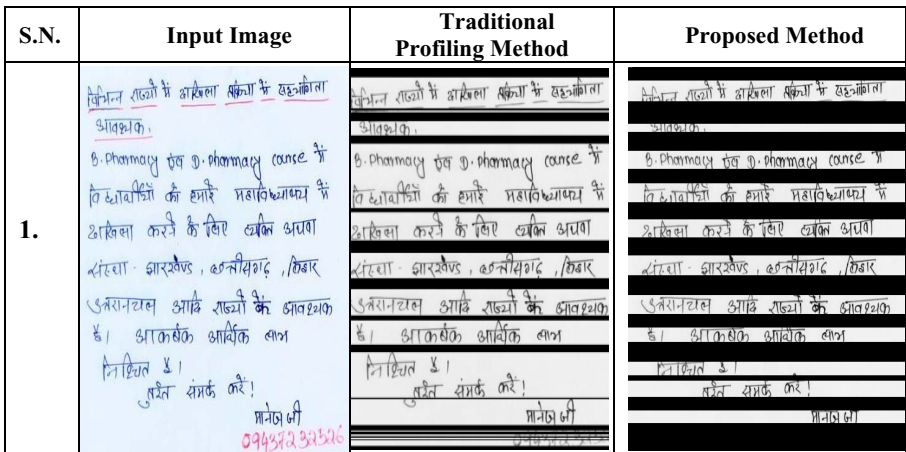 S.N. Input Image Traditional Profiling Method Proposed Method
1.
विभिन्न राज्यों में दाखिला प्रक्रिया में सहभागिता
आवश्यक.
B. Pharmacy एवं D. pharmacy course में
विद्यार्थियों को हमारे महाविध्यालय में
दाखिला करने के लिए व्यक्ति अथवा
संस्था - झारखण्ड, छत्तीसगढ़, बिहार
उत्तरांचल आदि राज्यों के आवश्यक
है। आकर्षक आर्थिक लाभ
निश्चित है।
तुरंत संपर्क करें!
मनोज जी
09437232526
विभिन्न राज्यों में दाखिला प्रक्रिया में सहभागिता
आवश्यक.
B. Pharmacy एवं D. pharmacy course में
विद्यार्थियों को हमारे महाविध्यालय में
दाखिला करने के लिए व्यक्ति अथवा
संस्था - झारखण्ड, छत्तीसगढ़, बिहार
उत्तरांचल आदि राज्यों के आवश्यक
है। आकर्षक आर्थिक लाभ
निश्चित है।
तुरंत संपर्क करें!
मनोज जी
विभिन्न राज्यों में दाखिला प्रक्रिया में सहभागिता
आवश्यक.
B. Pharmacy एवं D. pharmacy course में
विद्यार्थियों को हमारे महाविध्यालय में
दाखिला करने के लिए व्यक्ति अथवा
संस्था - झारखण्ड, छत्तीसगढ़, बिहार
उत्तरांचल आदि राज्यों के आवश्यक
है। आकर्षक आर्थिक लाभ
निश्चित है।
तुरंत संपर्क करें!
मनोज जी